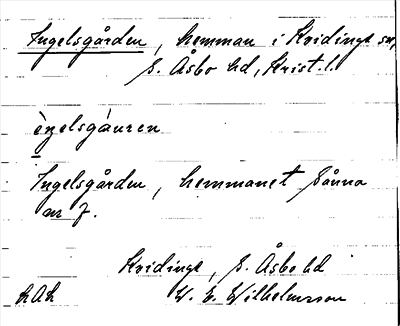 Ingelsgården, hemman i Kvidinge sn,
S. Åsbo hd, Krist. l.
èŋelsgáuren
Ingelsgården, hemmanet Sånna
nr 7.
Kvidinge, S. Åsbo hd
hAh W. E. Wilhelmsson